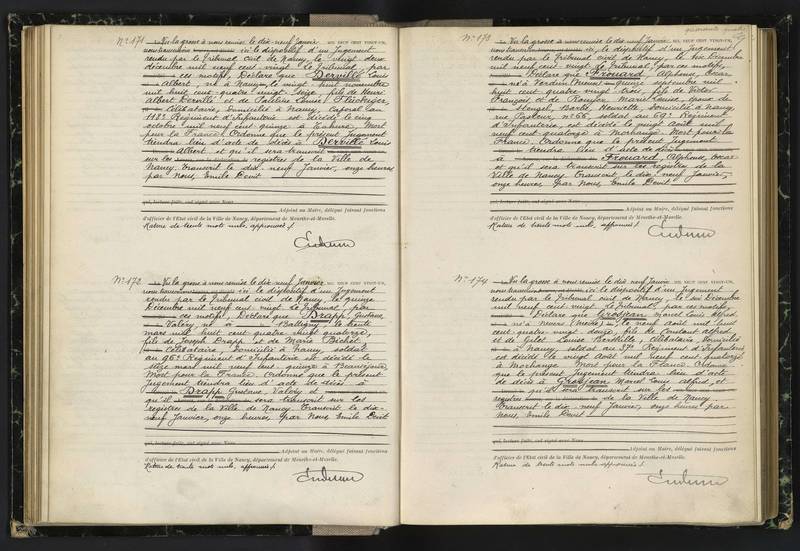 N° 171 Vu la grosse à nous remise le dix-neuf Janvier MIL NEUF CENT VINGT-UN,
nous transcrivons ici le dispositif d'un Jugement
rendu par le Tribunal civil de Nancy, le vingt deux
décembre mil neuf cent vingt. Le Tribunal, par
ces motifs, Déclare que Derville Louis
Albert, né à Nancy, le vingt huit novembre
mil huit cent quatre vingt seize, fils de Henri
Albert Derville et de Caroline Louise
Célibataire, domicilié à Nancy, Caporal au
Régiment d'Infanterie est décédé le cinq
octobre mil neuf cent quinze à Tahure, Mort
pour la France. Ordonne que le présent Jugement
tiendra lieu d'acte de décès à Derville Louis
Albert et qu'il sera transcrit
sur les registres de la Ville de
Nancy. Transcrit le dix-neuf Janvier, onze heures
par Nous, Emile Devit
qui, lecture faite, ont signé avec Nous
Adjoint au Maire, délégué faisant fonctions
d'officier de l'Etat civil de la Ville de Nancy, département de Meurthe-et-Moselle.
Rature de trente mots nuls, approuvée /.
N° 172 Vu la grosse à nous remise le dix-neuf Janvier MIL NEUF CENT VINGT-UN,
nous transcrivons ici le dispositif d'un Jugement
rendu par le Tribunal civil de Nancy, le quinze
Décembre mil neuf cent vingt. Le Tribunal, par
ces motifs, Déclare que Drapp Gustave
Valéry, né à Batilly, le trente
mars mil huit cent quatre vingt quatorze,
fils de Joseph Drapp et de Marie Bichet
Célibataire, domicilié à Nancy, soldat
au Régiment d'Infanterie est décédé le
seize mars mil neuf cent quinze à Beauséjour
Mort pour la France. Ordonne que le présent
Jugement tiendra lieu d'acte de décès à
Drapp Gustave, Valéry et
qu'il sera transcrit sur les
registres de la Ville de Nancy. Transcrit le dix-
neuf Janvier, onze heures, par Nous, Emile Devit
qui, lecture faite, ont signé avec Nous
Adjoint au Maire, délégué faisant fonctions
d'officier de l'Etat civil de la Ville de Nancy, département de Meurthe-et-Moselle.
Rature de trente mots nuls, approuvée /.
N° 173 Vu la grosse à nous remise le dix-neuf Janvier MIL NEUF CENT VINGT-UN,
nous transcrivons ici le dispositif d'un Jugement
rendu par le Tribunal civil de Nancy, le Décembre
mil neuf cent vingt. Le Tribunal, par ces motifs,
Déclare que Frouard, Alphonse, Oscar
né à le quinze septembre mil
huit cent quatre vingt trois, fils de Victor
François et de Marie Louise, époux de
Henriette, domicilié à Nancy,
rue Pasteur n° 66, soldat au 69e Régiment
d'Infanterie est décédé le vingt Août mil
neuf cent quatorze à Morhange. Mort pour la
France. Ordonne que le présent Jugement
tiendra lieu d'acte de décès
à Frouard, Alphonse, Oscar
et qu'il sera transcrit sur les registres de la
Ville de Nancy. Transcrit le dix-neuf Janvier,
onze heures, par Nous, Emile Devit
qui, lecture faite, ont signé avec Nous
Adjoint au Maire, délégué faisant fonctions
d'officier de l'Etat civil de la Ville de Nancy, département de Meurthe-et-Moselle.
Rature de trente mots nuls, approuvée /.
N° 174 Vu la grosse à nous remise le dix-neuf Janvier MIL NEUF CENT VINGT-UN,
nous transcrivons ici le dispositif d'un Jugement
rendu par le Tribunal civil de Nancy, le six Décembre
mil neuf cent vingt. Le Tribunal, par ces motifs,
Déclare que Grosjean Marcel Louis Alfred
né à Nevers (Nièvre), le neuf Août mil huit
cent quatre vingt douze, fils de Constant Alfred
et de Gilot Louise Berthilde, Célibataire, domicilié
à Nancy, soldat au Régiment d'Infanterie
est décédé le vingt Août mil neuf cent quatorze
à Morhange. Mort pour la France. Ordonne
que le présent Jugement tiendra lieu d'acte
de décès à Grosjean Marcel Louis Alfred, et
qu'il sera transcrit sur les
registres de la Ville de Nancy.
Transcrit le dix-neuf Janvier, onze heures par
Nous, Emile Devit
qui, lecture faite, ont signé avec Nous
Adjoint au Maire, délégué faisant fonctions
d'officier de l'Etat civil de la Ville de Nancy, département de Meurthe-et-Moselle.
Rature de trente mots nuls, approuvée /.